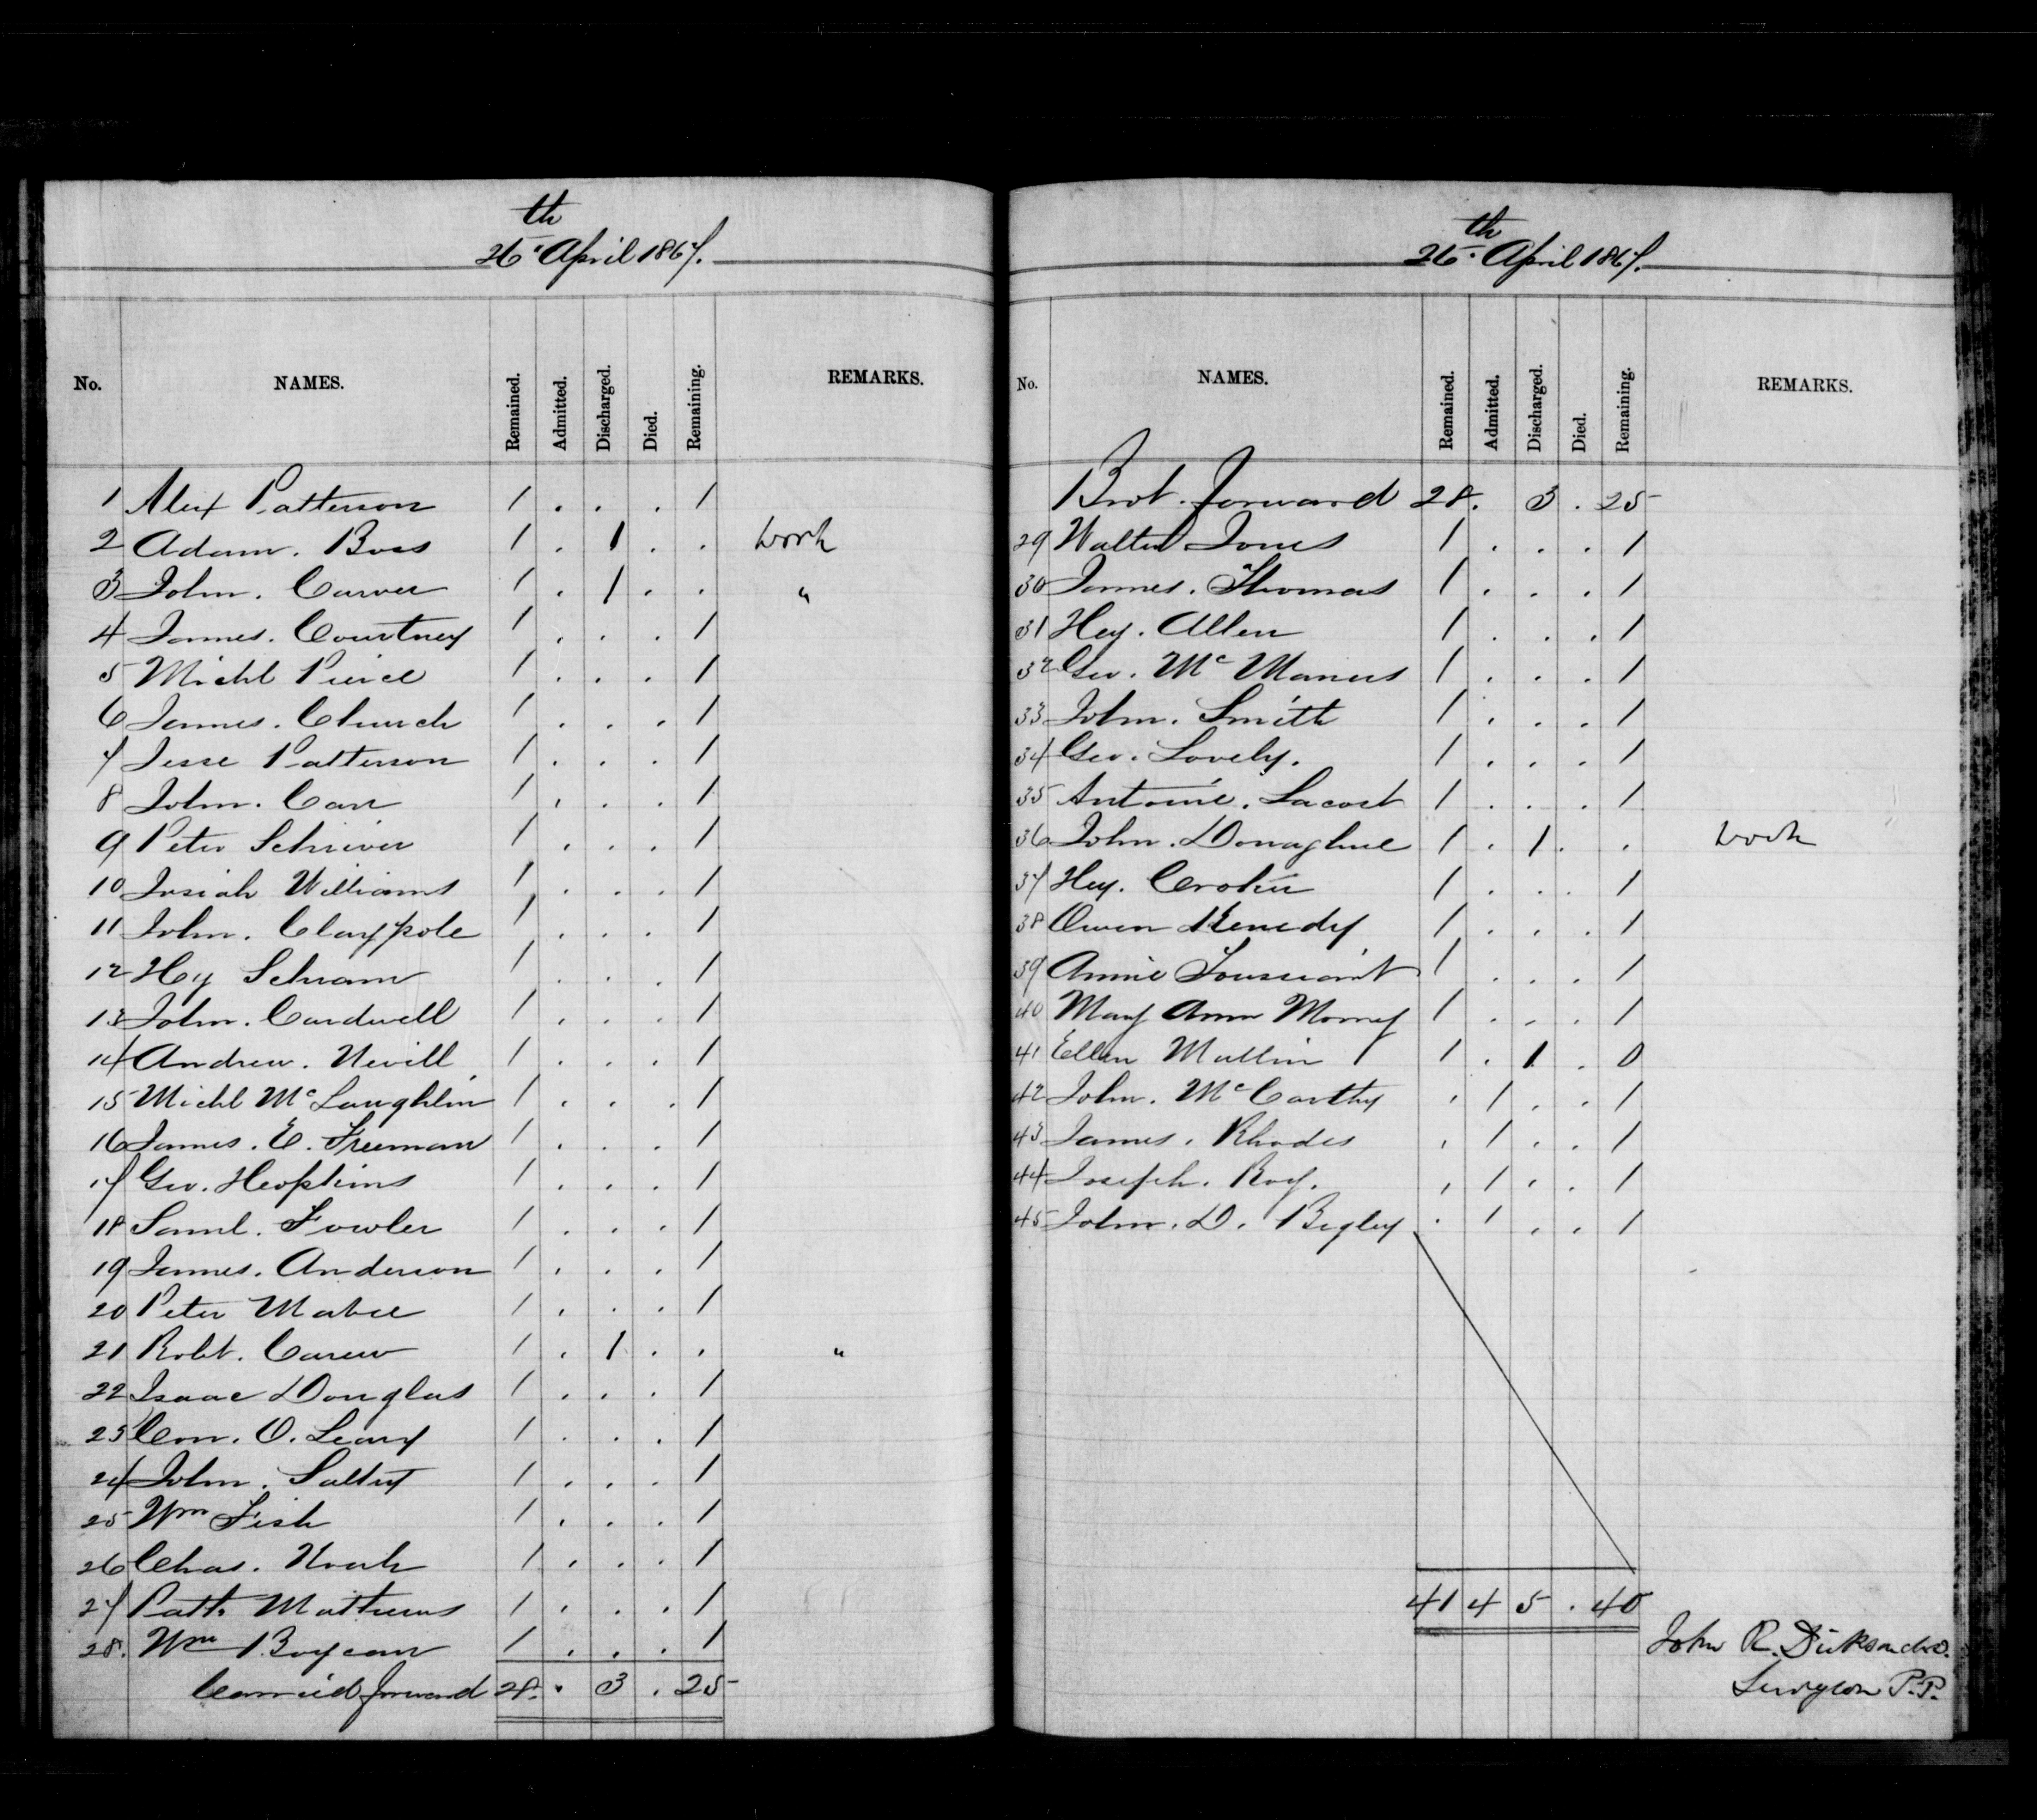 26th April 1867.
No. NAMES. Remained. Admitted. Discharged. Died. Remaining. REMARKS.
1 Alex Patterson 1 . . . 1
2 Adam. Boss 1 . 1 . . work
3 John. Carver 1 . 1 . . "
4 James. Courtney 1 . . . 1
5 Michl Peirce 1 . . . 1
6 James. Church 1 . . . 1
7 Jesse Patterson 1 . . . 1
8 John. Carr 1 . . . 1
9 Peter Schriver 1 . . . 1
10 Josiah Williams 1 . . . 1
11 John. Claypole 1 . . . 1
12 Hy Schram 1 . . . 1
13 John. Cardwell 1 . . . 1
14 Andrew. Nevill 1 . . . 1
15 Michl McLaughlin 1 . . . 1
16 James. E. Freeman 1 . . . 1
17 Geo. Hopkins 1 . . . 1
18 Saml. Fowler 1 . . . 1
19 James. Anderson 1 . . . 1
20 Peter Mabee 1 . . . 1
21 Robt. Carew 1 . 1 . . "
22 Isaac Douglas 1 . . . 1
23 Con. O. Leary 1 . . . 1
24 John. 1 . . . 1
25 Wm Fish 1 . . . 1
26 Chas. 1 . . . 1
27 Patk. Mathews 1 . . . 1
28. Wm 1 . . . 1
Carried forward 28. . 3 . 25
26th. April 1867.
No. NAMES. Remained. Admitted. Discharged. Died. Remaining. REMARKS.
Brot. forward 28. 3 . 25
29 Walter Jones 1 . . . 1
30 James. Thomas 1 . . . 1
31 Hey. Allen 1 . . . 1
32 Geo. McManus 1 . . . 1
33 John. Smith 1 . . . 1
34 Geo. Lovely. 1 . . . 1
35 Antoine. Lacost 1 . . . 1
36 John. Donaghue 1 . 1 . . work
37 Hey. Croker 1 . . . 1
38 Owen Kenedy 1 . . . 1
39 Annie Toussaint 1 . . . 1
40 Mary Ann Morrey 1 . . . 1
41 Ellen Mullin 1 . 1 . 0
42 John. McCarthy . 1 . . 1
43 James. Rhodes . 1 . . 1
44 Joseph. Roy. . 1 . . 1
45 John. D. Begley . 1 . . 1
41 4 5 . 40
John R. Dickson M.D.
Surgeon P.P.